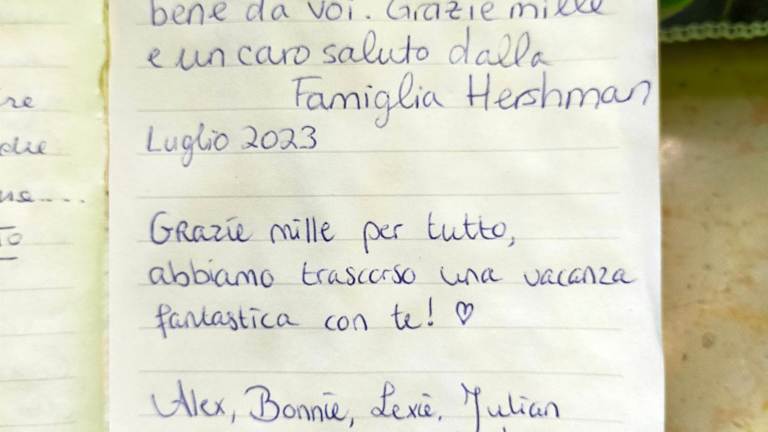 bene da voi. Grazie mille
e un caro saluto dalla
Famiglia Hershman
Luglio 2023
GRazie mille per tutto,
abbiamo trascorso una vacanza
fantastica con te! ♡
Alex, Bonnie, Lexie, Julian